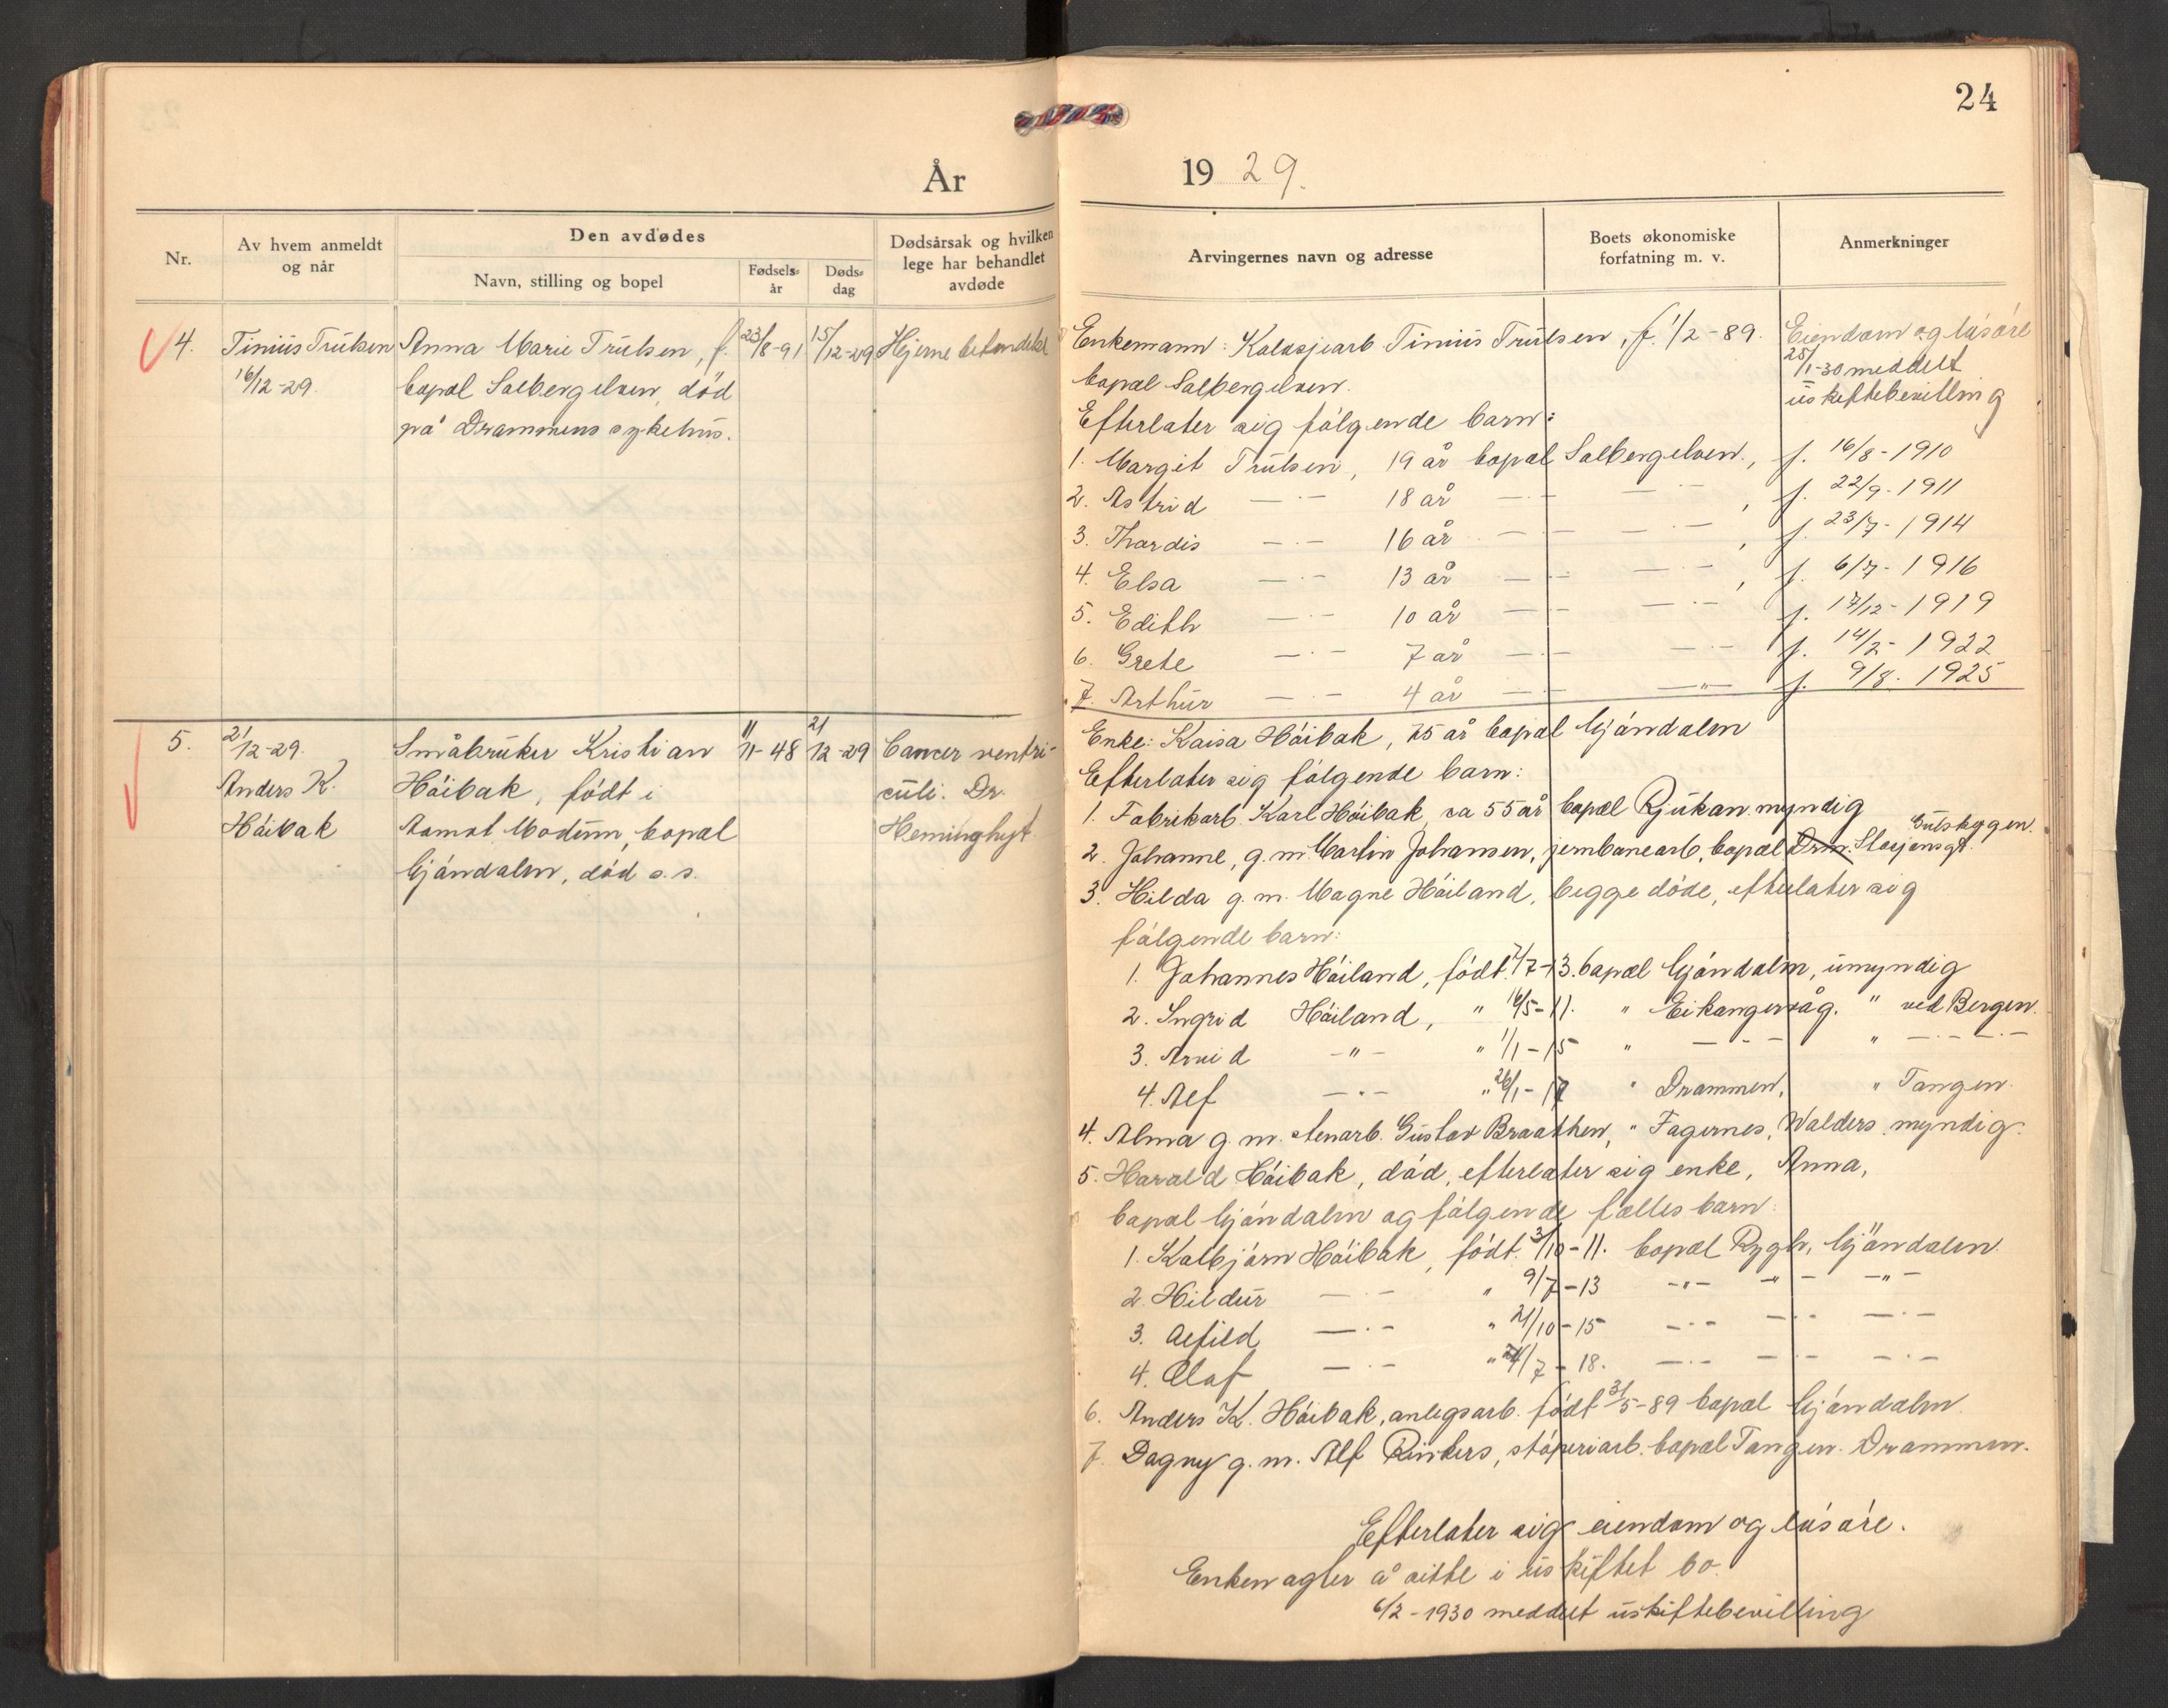 24
År 1929.
Nr.
Av hvem anmeldt og når
Den avdødes
Navn, stilling og bopel
Fødsels-år
Døds-dag
Dødsårsak og hvilken lege har behandlet avdøde
Arvingernes navn og adresse
Boets økonomiske forfatning m. v.
Anmerkninger
4. Tinius Trulsen Anna Marie Trulsen, f. 23/8-91 15/12-29 Hjerne betendelse
16/12-29. bopæl Solbergelven, død
på Drammens sykehus.
Enkemann: Koldsjearb. Tinius Trulsen, f. 1/2-89. Eiendom og løsøre
bopæl Solbergelven. 25/1-30 meddelt
uskiftebevilling
Efterlater sig følgende barn:
1. Margit Trulsen, 19 år bopæl Solbergelven., f. 16/8-1910
2. Astrid —·— 18 år —·— —·— , f. 22/9-1911
3. Thordis —·— 16 år —·— —·— , f. 23/7-1914
4. Elsa —·— 13 år —·— —·— , f. 6/7-1916
5. Edith —·— 10 år —·— —·— f. 17/12-1919
6. Grete —·— 7 år —·— —·— f. 14/2-1922
7. Arthur —·— 4 år —·— —"— f. 9/8-1925
5. 21/12-29. Småbruker Kristian 11/11-48 21/12-29 Cancer ventri-
Anders K. Høibak, født i culi. Dr.
Høibak Aamot Modum, bopæl Heminghyt.
Gjøndalen, død s.s.
Enke: Kaisa Høibak, 75 år bopæl Gjøndalen
Efterlater sig følgende barn:
1. Fabrikarb. Karl Høibak, ca 55 år bopæl Rjukan myndig
Gulskogen.
2. Johanne, g. m. Martin Johansen, jernbanearb, bopæl Drm. Stasjonsgt.
3. Hilda g. m. Magne Høiland, begge døde, efterlater sig
følgende barn:
1. Johannes Høiland, født 7/7-13. bopæl Gjøndalen, umyndig
2. Ingrid Høiland, " 16/5-11. " Eikangervåg. " ved Bergen.
3. Arvid -"- " 1/1-15 " — - - " —·—·—
4. Alf —·— " 26/1-17 " Drammen, " Tangen.
4. Alma g. m. stenarb. Gustav Braathen, " Fagernes, Valders. myndig.
5. Harald Høibak, død, efterlater sig enke, Anna,
bopæl Gjøndalen og følgende fælles barn:
1. Kolbjørn Høibak, født 3/10-11. bopæl Rygh, Gjøndalen.
2. Hildur —·— " 9/7-13 -"- -"- -"-
3. Alfild —·— " 21/10-15 -·- —·— —·—
4. Olaf —·— " 24/7-18. —·— —·— —·—
6. Anders K. Høibak, anlegsarb. født 31/5-89 bopæl Gjøndalen.
7. Dagny g. m. Alf Rinkers, støperiarb. bopæl Tangen. Drammen.
Efterlater sig eiendom og løsøre.
Enken agter å sitte i uskiftet bo.
6/2-1930 meddelt uskiftebevilling